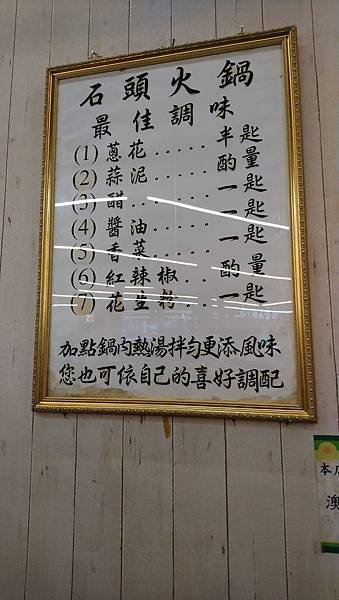 石頭火鍋
最佳調味
(1) 蔥花.....半匙
(2) 蒜泥.....酌量
(3) 醋......一匙
(4) 醬油.....一匙
(5) 香菜.....一匙
(6) 紅辣椒...酌量
(7) 花生粉...一匙
加點鍋內熱湯拌勻更添風味
您也可依自己的喜好調配
本店
澳